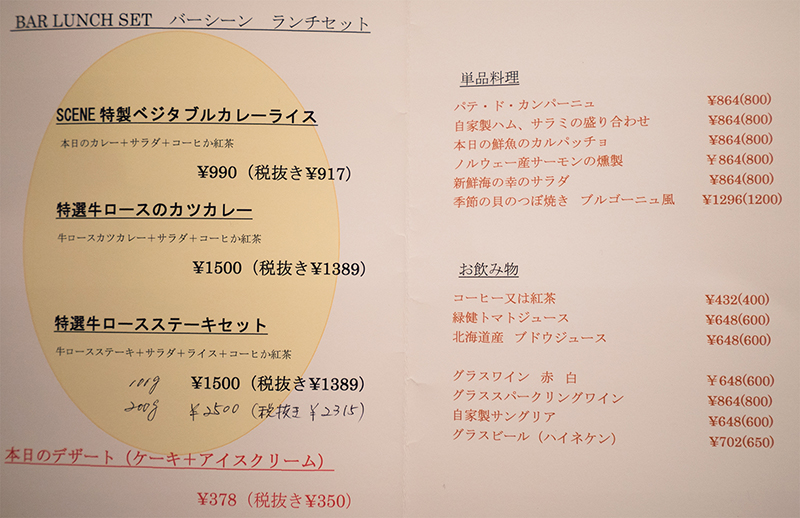 BAR LUNCH SET バーシーン ランチセット
SCENE 特製ベジタブルカレーライス
本日のカレー＋サラダ＋コーヒか紅茶
¥990（税抜き¥917）
特選牛ロースのカツカレー
牛ロースカツカレー＋サラダ＋コーヒか紅茶
¥1500（税抜き¥1389）
特選牛ロースステーキセット
牛ロースステーキ＋サラダ＋ライス＋コーヒか紅茶
100g ¥1500（税抜き¥1389）
200g ¥2500（税抜き ¥2315）
本日のデザート（ケーキ＋アイスクリーム）
¥378（税抜き¥350）
単品料理
パテ・ド・カンパーニュ ¥864(800)
自家製ハム、サラミの盛り合わせ ¥864(800)
本日の鮮魚のカルパッチョ ¥864(800)
ノルウェー産サーモンの燻製 ¥864(800)
新鮮海の幸のサラダ ¥864(800)
季節の貝のつぼ焼き ブルゴーニュ風 ¥1296(1200)
お飲み物
コーヒー又は紅茶 ¥432(400)
緑健トマトジュース ¥648(600)
北海道産 ブドウジュース ¥648(600)
グラスワイン 赤 白 ¥648(600)
グラススパークリングワイン ¥864(800)
自家製サングリア ¥648(600)
グラスビール（ハイネケン） ¥702(650)